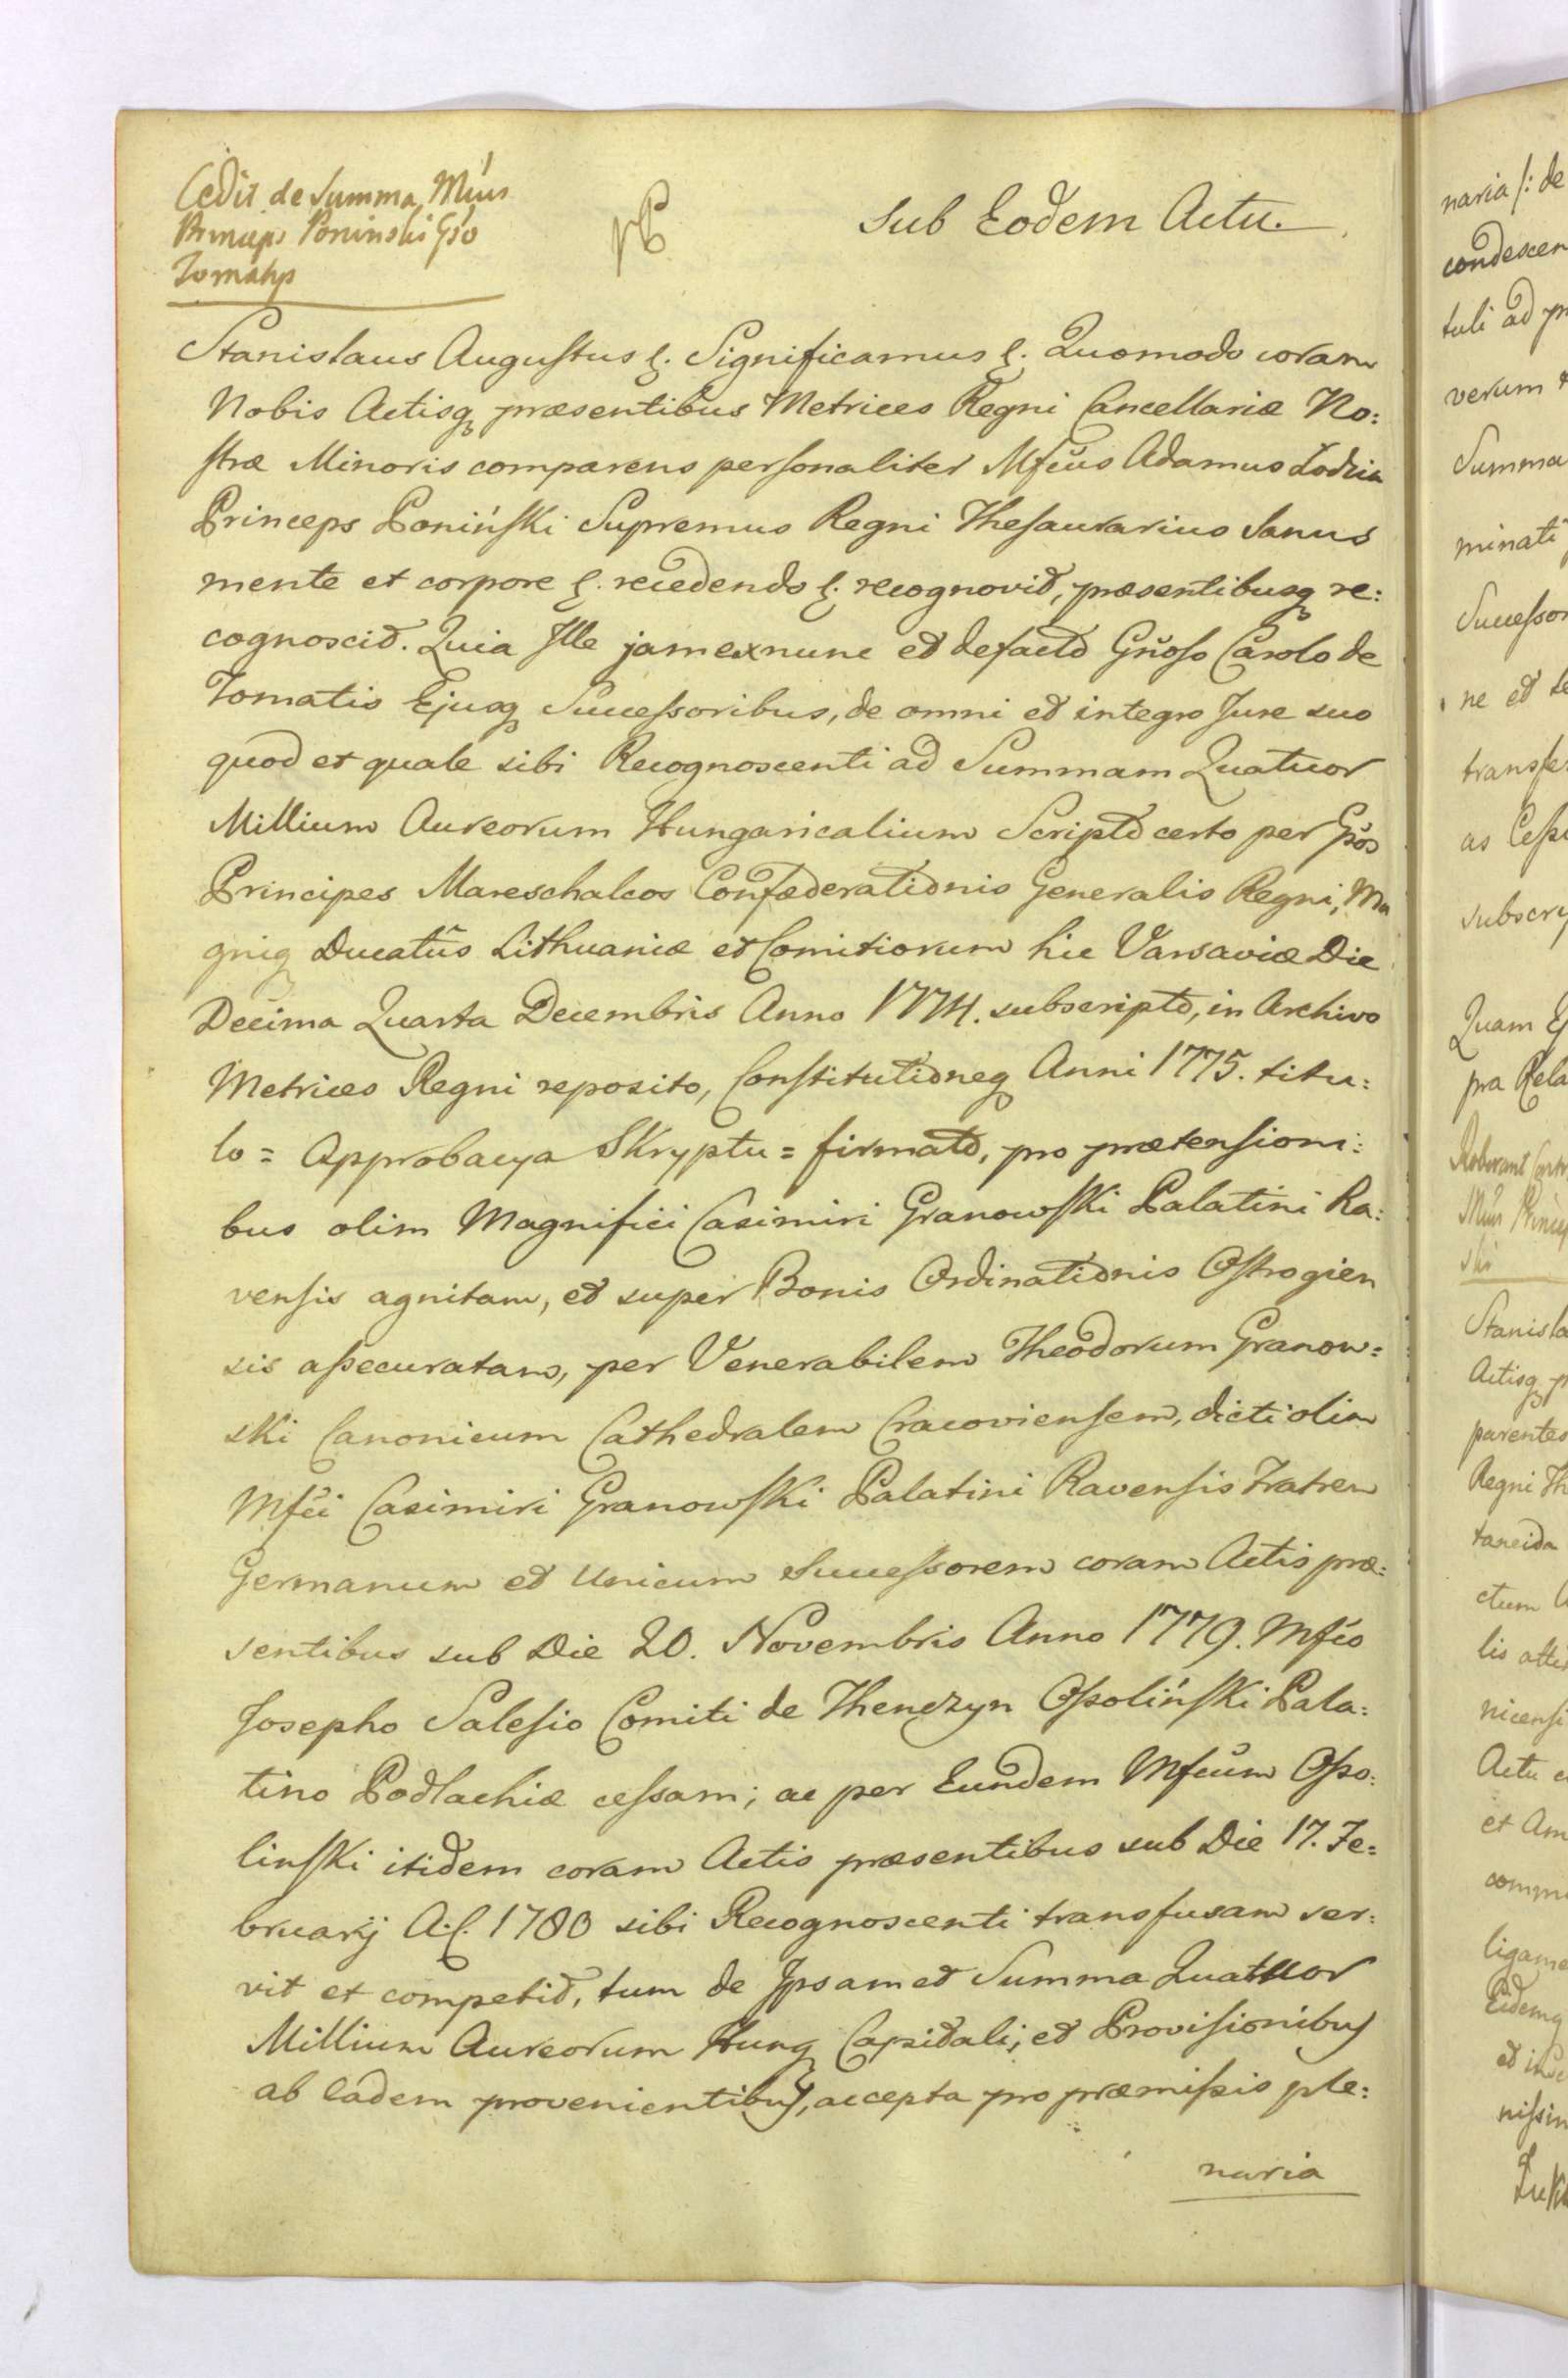 Cedit de Summa Mcus
Princeps Poninski Gso
Tomatis
Sub Eodem Actu.
Stanislaus Augustus &. Significamus &. Quomodo coram
Nobis Actisq præsentibus Metrices Regni Cancellariæ No:
stræ Minoris comparens personaliter Mfcus Adamus Łodzia
Princeps Poniński Supremus Regni Thesaurarius Sanus
mente et corpore &. recedendo &. recognovit, præsentibusq re:
cognoscit. Quia Ille jam exnunc et defacto Gnoso Carolo de
Tomatis Ejusq Successoribus, de omni et integro Jure suo
quod et quale sibi Recognoscenti ad Summam Quatuor
Millium Aureorum Hungaricalium Scripto certo per
Principes Mareschalcos Confæderationis Generalis Regni, Ma
gniq Ducatûs Lithuaniæ et Comitiorum hic Varsaviæ Die
Decima Quarta Decembris Anno 1774. subscripto, in Archivo
Metrices Regni reposito, Constitutioneq Anni 1775. titu:
lo = Approbacya Skryptu = firmato, pro prætensioni:
bus olim Magnifici Casimiri Granowski Palatini Ra:
vensis agnitam, et super Bonis Ordinationis Ostrogien
sis assecuratam, per Venerabilem Theodorum Granow=
ski Canonicum Cathedralem Cracoviensem, dicti olim
Mfci Casimiri Granowski Palatini Ravensis Fratrem
Germanum et Unicum Successorem coram Actis præ:
sentibus sub Die 20. Novembris Anno 1779. Mfco
Josepho Salesio Comiti de Thenczyn Ossoliński Pala:
tino Podlachiæ cessam; ac per Eundem Mfcum Osso:
linski itidem coram Actis præsentibus sub Die 17. Fe=
bruarij A.C. 1780 sibi Recognoscenti transfusam ser:
vit et competit, tum de Ipsamet Summa Quatuor
Millium Aureorum Hung Capitali, et Provisionibus
ab Eadem provenientibus, accepta pro præmissis ple:
naria
naria /: de
condescen
tuli ad
verum
Summa
minati
Successor
ne et
transfe
as Cessi
subscry
Quam
pra Rela
Stanisla
Actisq
parentes
Regni Th
taneida
ctum
lis
nicensi
Actu
et Am
comm
ligame
Eidemq
et
nissim